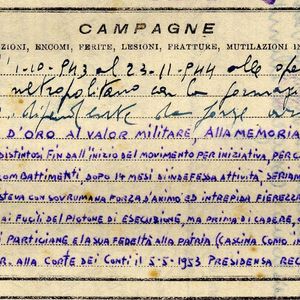 CAMPAGNE
ZIONI, ENCOMI, FERITE, LESIONI, FRATTURE, MUTILAZIONI IN
1-10-943 al 23-11-944 alle ope
metropolitano con la formazi
dipendente da forze ar
D'ORO AL VALOR MILITARE, ALLA MEMORIA
DISTINTOSI FIN DALL'INIZIO DEL MOVIMENTO PER INIZIATIVA, PER C
OMBATTIMENTI, DOPO 14 MESI DI INDEFESSA ATTIVITÀ, SERIAM
STEVA CON SOVRUMANA FORZA D'ANIMO ED INTREPIDA FIEREZZ
AI FUCILI DEL PLOTONE DI ESECUZIONE, MA PRIMA DI CADERE,
I PARTIGIANE E LA SUA FEDELTÀ ALLA PATRIA (CASCINA COMO IN
R. ALLA CORTE DEI CONTI IL 5-5-1953 PRESIDENZA REG